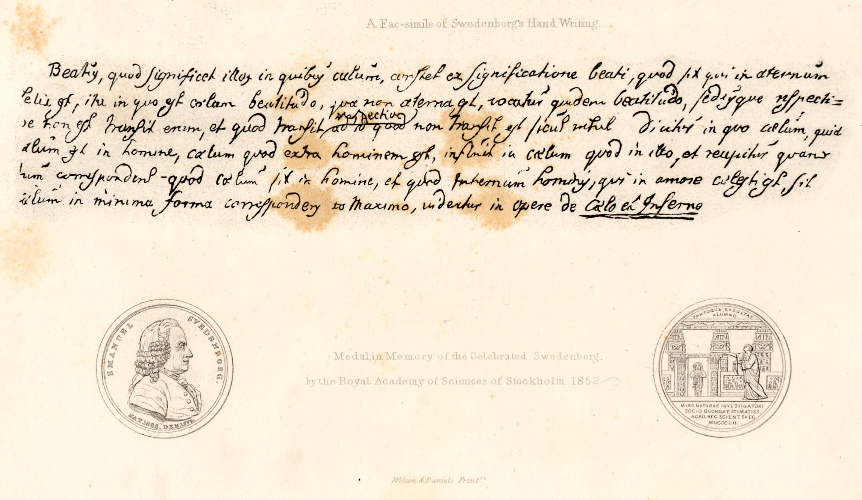 A Fac-simile of Swedenborg's Hand Writing.
Beatus, quod significet illos in quibus cælum, constat ex significatione beati, quod sit qui in æternum
felix est, ita in quo est cælum beatitudo, quæ non æterna est, vocatur quidem beatitudo, sed usque respecti-
ve non est transit enim, et quod transit, respective
ad id quod non transit est sicut nihil Dicitur in quo cælum, quia
cælum est in homine, cælum quod extra hominem est, influit in cælum quod in illo, et recipitur quan-
tum correspondent - quod cælum sit in homine, et quod Internum hominis, qui in amore cælesti est, sit
cælum in minima forma correspondens Maximo, videatur in opere de Cælo et Inferno
EMANUEL SVEDENBORG.
NAT. 1688. DEN. 1772.
Medal, in Memory of the Celebrated Swedenborg,
by the Royal Academy of Sciences of Stockholm 1852
TANTOQUE EXSULTAT
ALUMNO
MIRO NATURAE INVESTIGATORI
SOCIO QUONDAM AESTIMATISS.
ACAD. REG. SCIENT. SVEC.
MDCCCLII.
Wilson & Daniels Print.rs